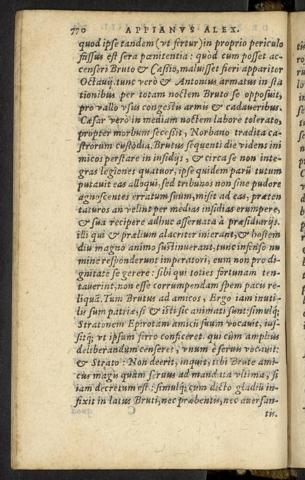 770 APPIANVS ALEX.
quod ipse tandem (vt fertur) in proprio periculo
fassus est sera pœnitentia: quod cum posset ac-
censeri Bruto & Cassio, maluisset fieri apparitor
Octauij. tunc verò & Antonius armatus in sta
tionibus per totam noctem Bruto se opposuit,
pro vallo vsus congestis armis & cadaueribus.
Cæsar verò in mediam noctem labore tolerato,
propter morbum secessit, Norbano tradita ca-
strorum custodia. Brutus sequenti die videns ini
micos perstare in insidijs, & circa se non inte-
gras legiones quatuor, ipse quidem parū tutum
putauit eas alloqui, sed tribunos non sine pudore
agnoscentes erratum suum, misit ad eas, præten
taturos an velint per medias insidias erumpere,
& sua recipere adhuc asseruata à præsidiarijs.
illi qui ad prælium alacriter inierant, & hostem
diu magno animo sustinuerant, tunc infenso nu
mine responderunt imperatori, eum non pro di-
gnitate se gerere: sibi qui toties fortunam ten-
tauerint, non esse corrumpendam spem pacu re-
liquā. Tum Brutus ad amicos, Ergo tam inuti-
lis sum patriæ, si & isti sic animati sunt: simulq́;
Stratonem Epirotam amicū suum vocauit, ius-
sitq́; vt ipsum ferro conficeret. qui cùm amplius
deliberandum censeret, vnum è seruis vocauit:
& Strato: Non deerit, inquit, tibi Brute ami-
cus magis quàm seruus ad mandata vltima, si
iam decretum est: simulq́; cum dicto gladiū in-
fixit in latus Bruti, nec præbentis, nec auersan-
tis.